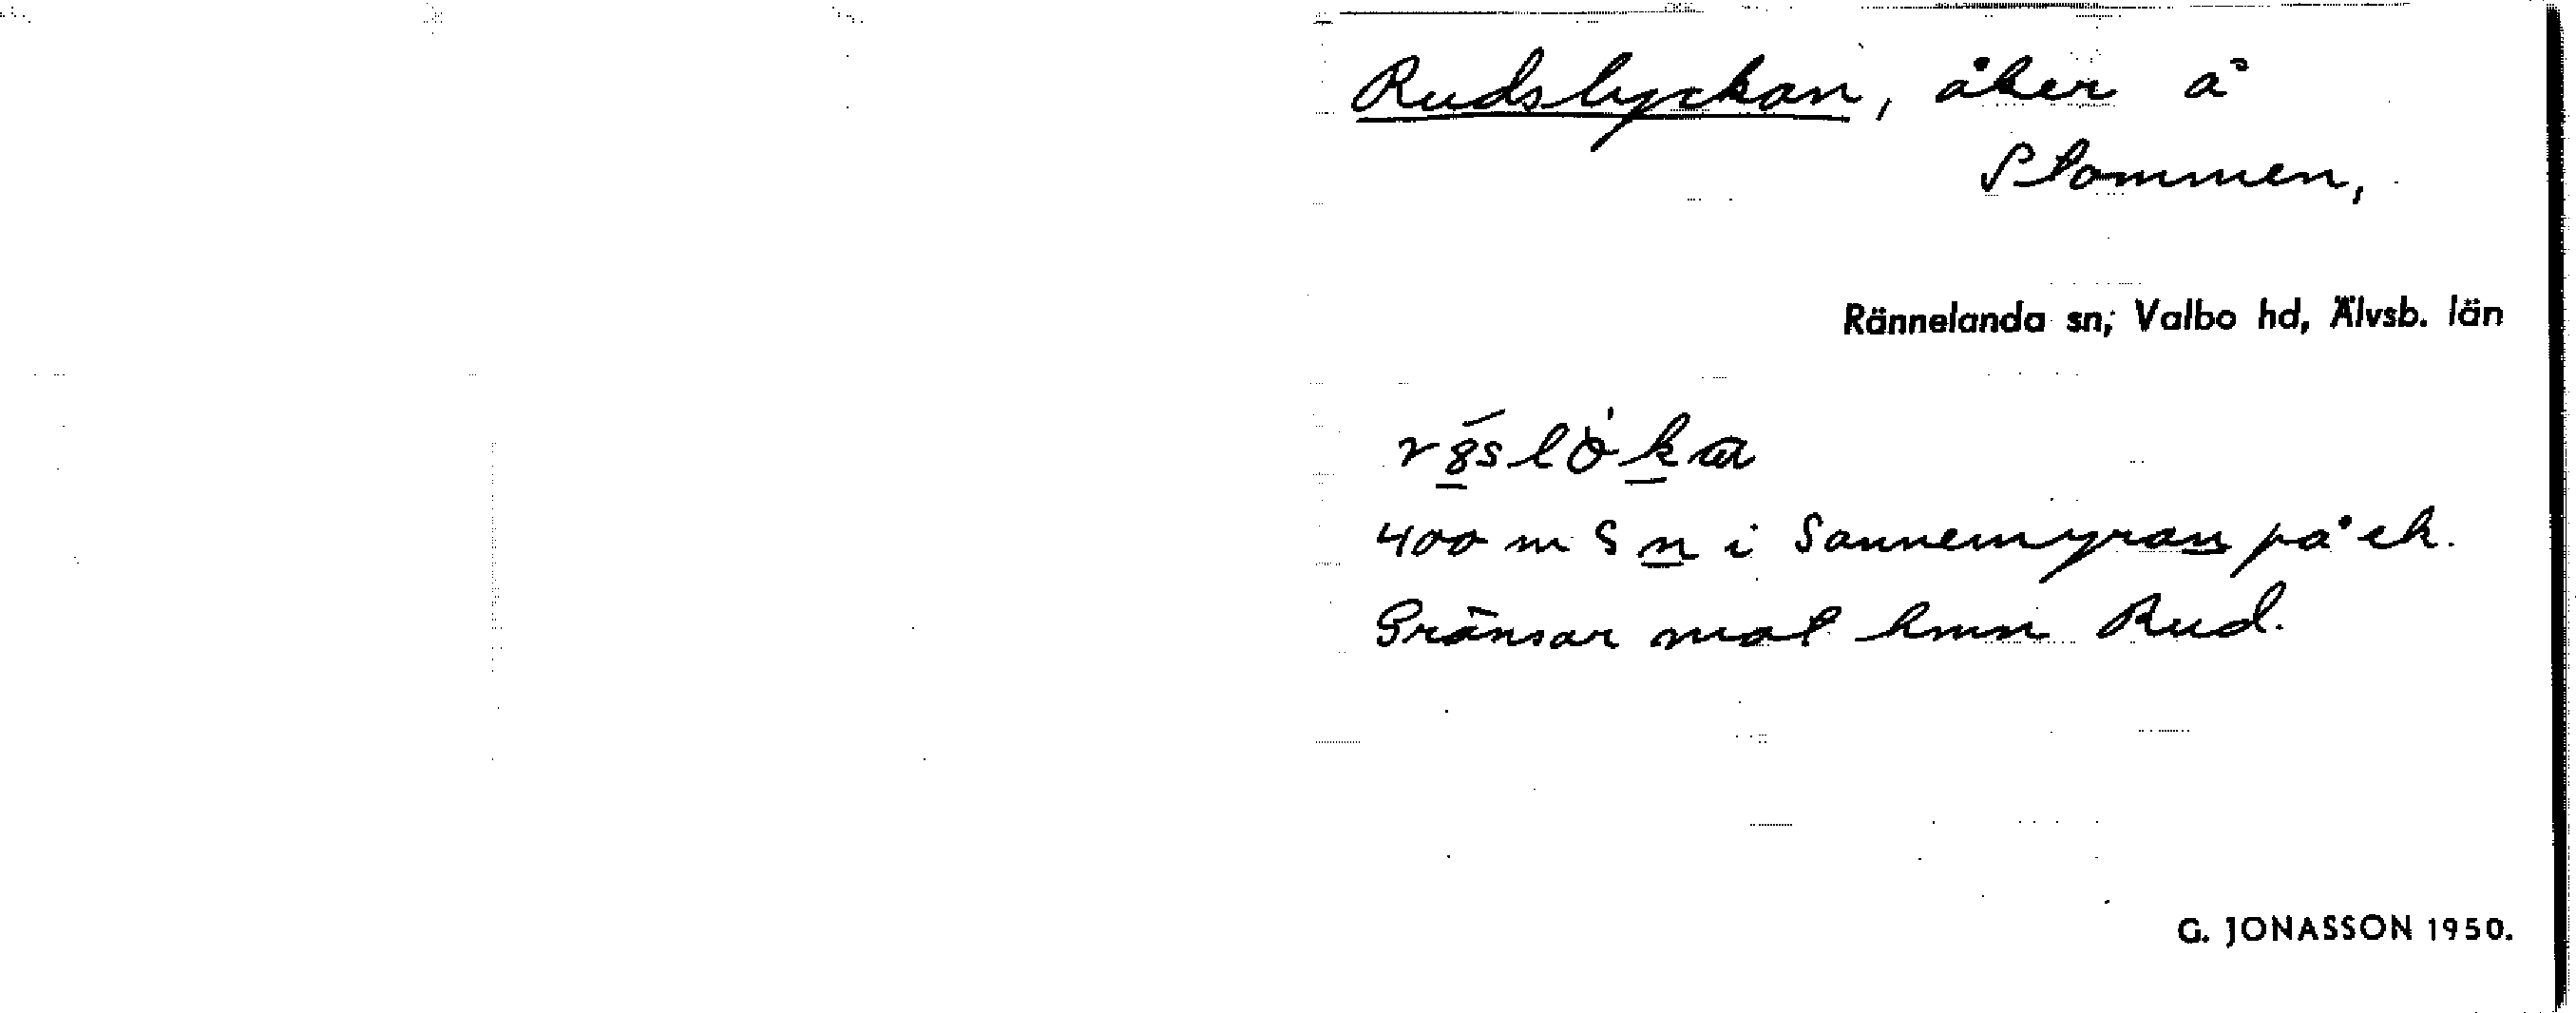 Rudslyckan, åker å
Stommen,
Rännelanda sn, Valbo hd, Älvsb. län
400 m S n i Sannemyran på ek.
Gränsar mot hmn Rud.
G. JONASSON 1950.